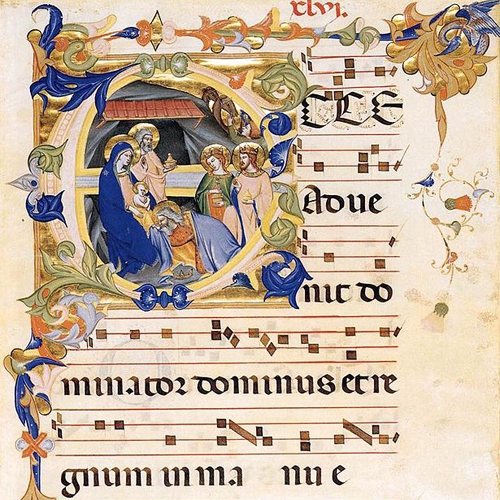 xlvi.
ECCE
Adve
nit do
minator dominus et re
gnum in ma nu e